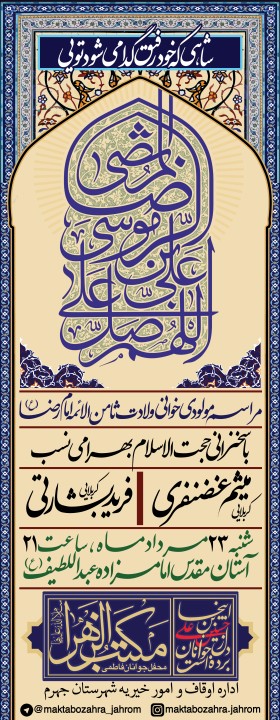 شاهی که خود رفیق گدا می شود تویی
اللهم صل علی علی بن موسی الرضا المرتضی
مراسم مولودی خوانی ولادت ثامن الائمه امام رضا (ع)
با سخنرانی حجت الاسلام بهرامی نسب
کربلایی میثم غضنفری
کربلایی فرید بشارتی
شنبه ۲۳ مرداد ماه ، ساعت ۲۱
آستان مقدس امامزاده عبداللطیف (ع)
مکتب الزهرا
محفل جوانان فاطمی
اینجا
حسین
علی
دل از
جوانان
برده است
اداره اوقاف و امور خیریه شهرستان جهرم
@maktabozahra_jahrom
maktabozahra-jahrom